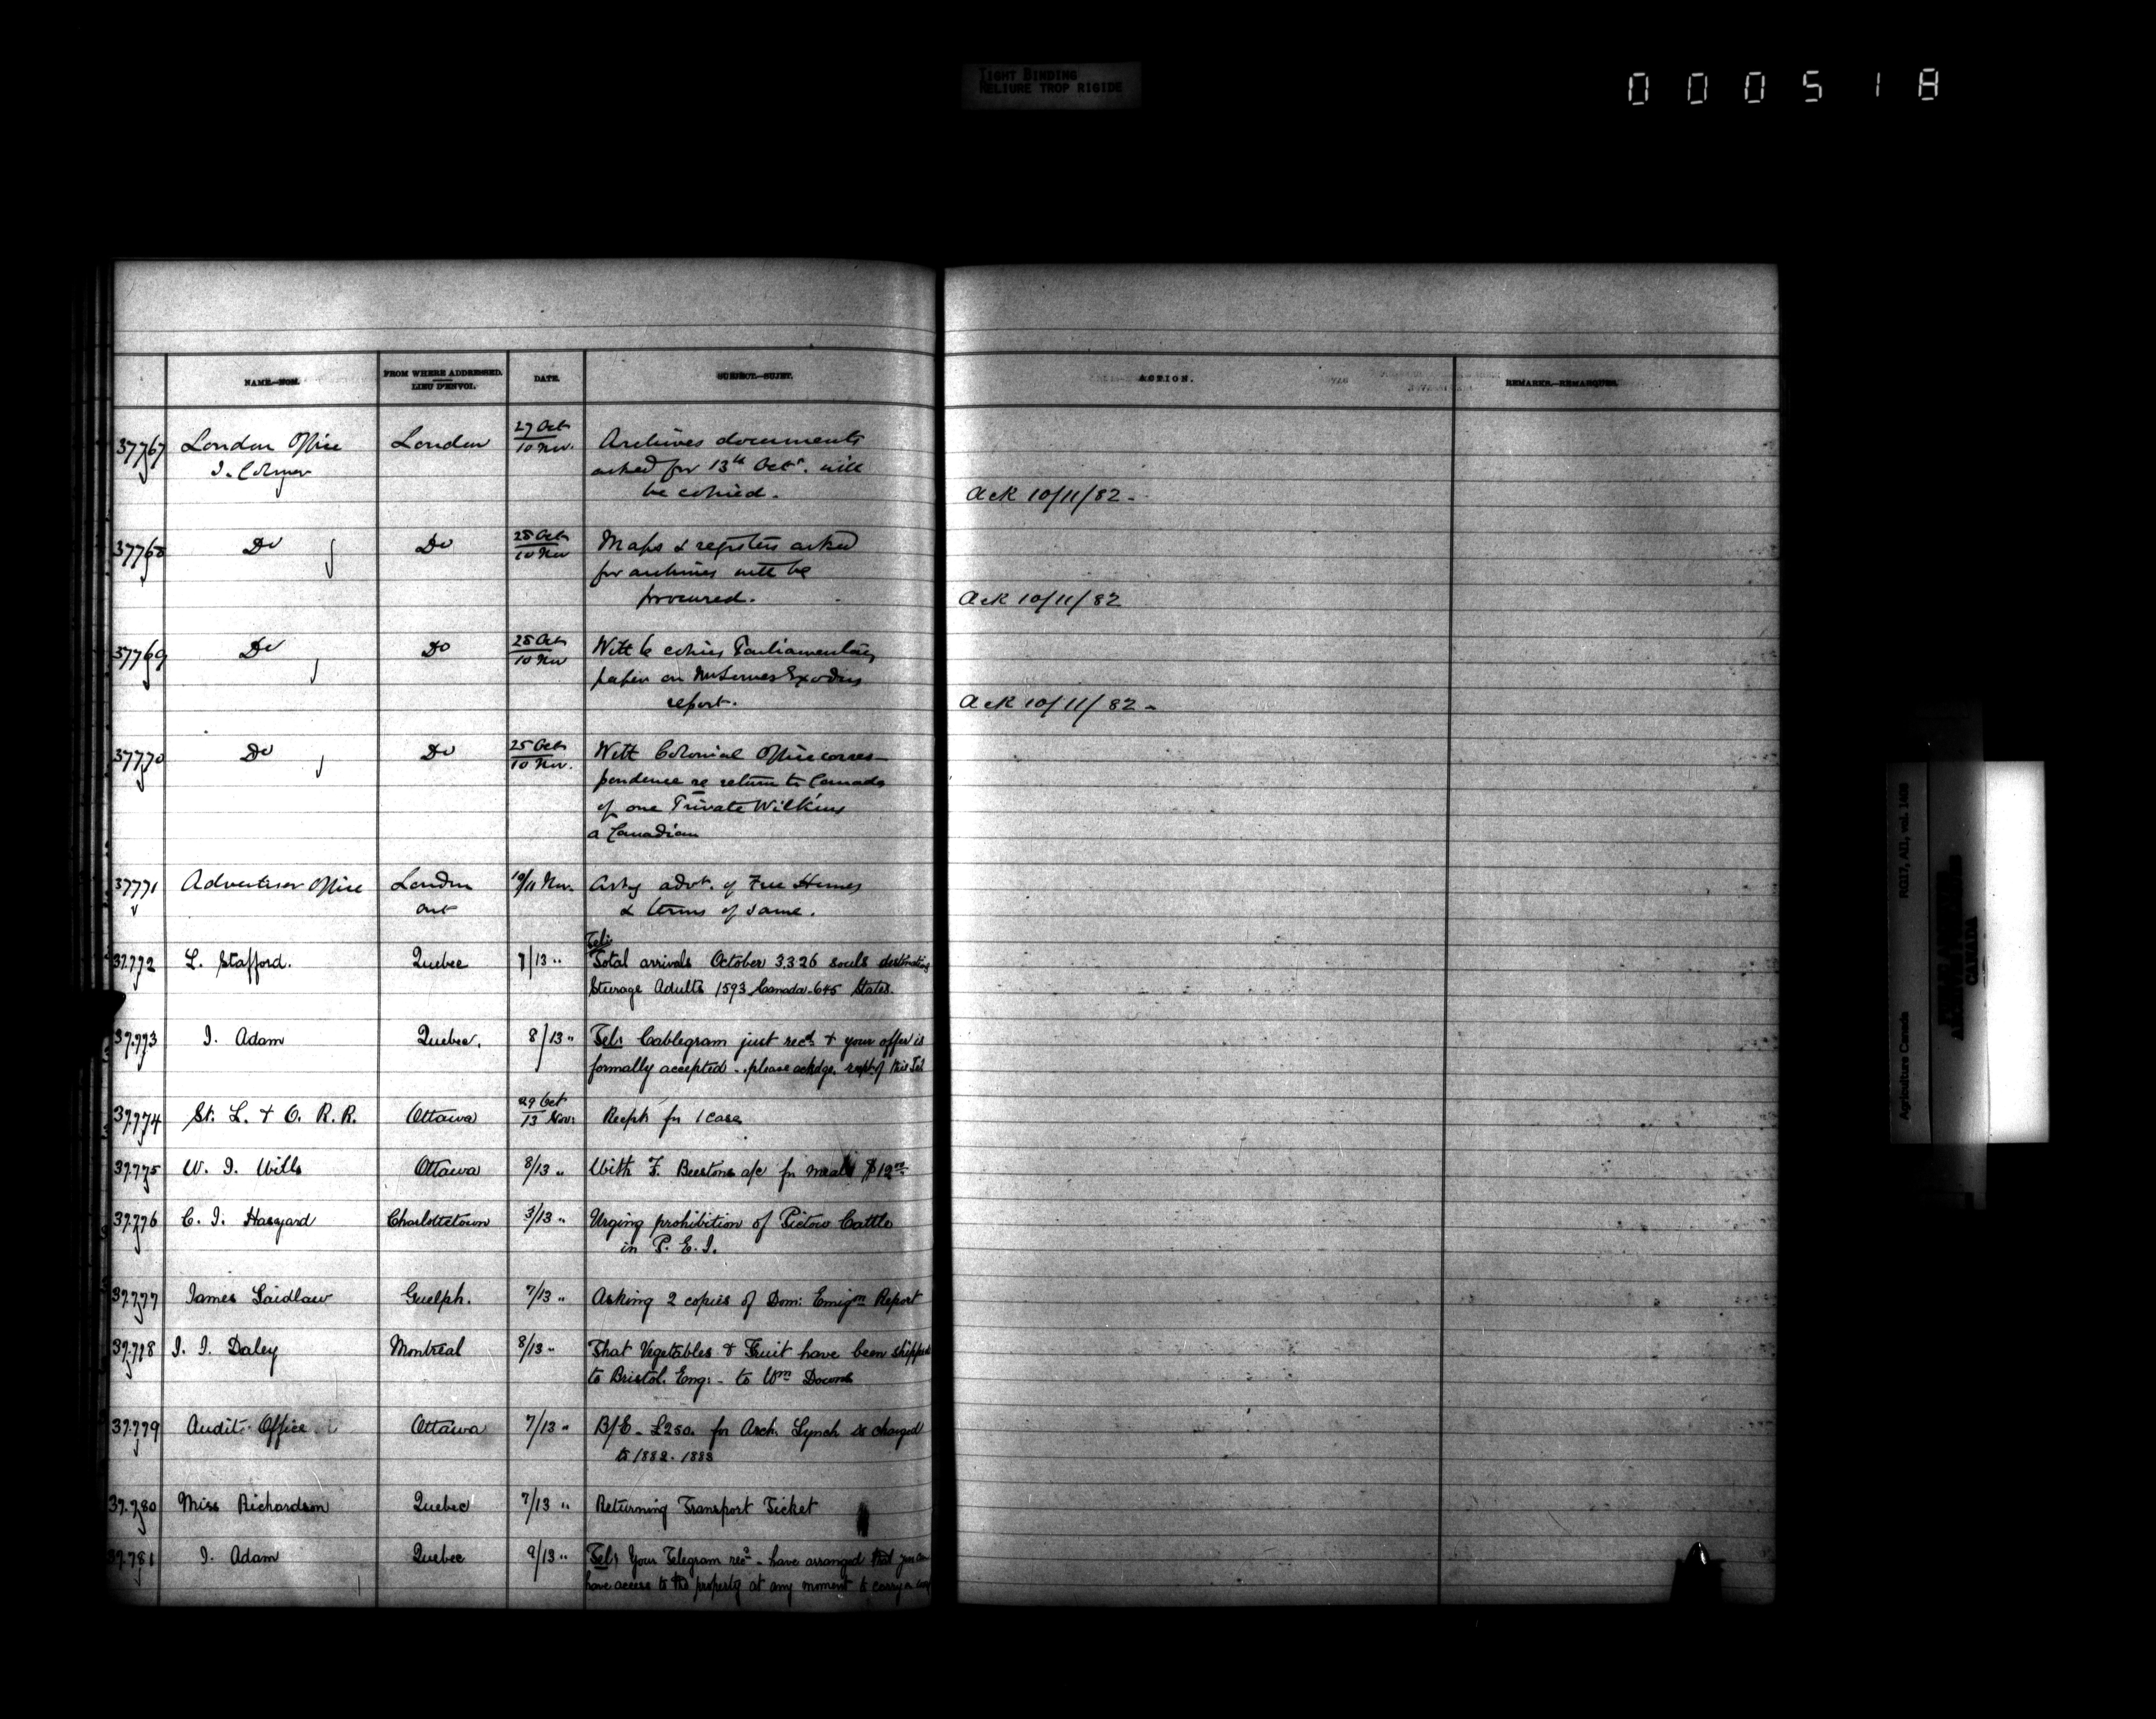 TIGHT BINDING
RELIURE TROP RIGIDE
000518
NAME.—NOM. FROM WHERE ADDRESSED. LIEU D'ENVOI. DATE. SUBJECT.—SUJET. ACTION. REMARKS.—REMARQUES.
37767 London Office London 27 Oct 10 Nov. Archives documents
J. Colmer asked for 13th Oct. will
be copied. Ack 10/11/82 -
37768 Do Do 28 Oct 10 Nov Maps & registers asked
for archives will be
procured. Ack 10/11/82
37769 Do Do 28 Oct 10 Nov With 6 copies Parliamentary
paper on report. Ack 10/11/82 -
37770 Do Do 25 Oct 10 Nov. With Colonial Office corres-
pondence re return to Canada
of one Private Wilkins
a Canadian
37771 Advertiser Office London 10/11 Nov. Askg advt. of Free Homes
Ont & terms of same.
Tel:
37.772 L. Stafford. Quebec 7/13 " Total arrivals October 3.326 souls destinating
Steerage Adults 1593 Canada - 645 States.
37.773 J. Adam Quebec. 8/13 " Tel: Cablegram just recd & your offer is
formally accepted - please acknldge. of this Tel
37.774 St. L. & O. R. R. Ottawa 29 Oct 13 Nov: Recpt for 1 case
37.775 W. J. Wills Ottawa 8/13 " With F. Beestons a/c for meals $12.00
37.776 C. J. Haszard Charlottetown 3/13 " Urging prohibition of Pictou Cattle
in P. E. I.
37.777 James Laidlaw Guelph. 7/13 " Asking 2 copies of Dom: Emign Report
37.778 J. J. Daley Montreal 8/13 " That Vegetables & Fruit have been shipped
to Bristol. Eng: - to Wm Downs
37.779 Audit Office Ottawa 7/13 " B/E - £250. for Arch. Lynch is charged
to 1882. 1883
37.780 Miss Richardson Quebec 7/13 " Returning Transport Ticket
37.781 J. Adam Quebec 9/13 " Tel: Your Telegram recd - have arranged that you can
have access to the property at any moment to carry on
Agriculture Canada RG17, AII, vol. 1489
PUBLIC ARCHIVES
CANADA